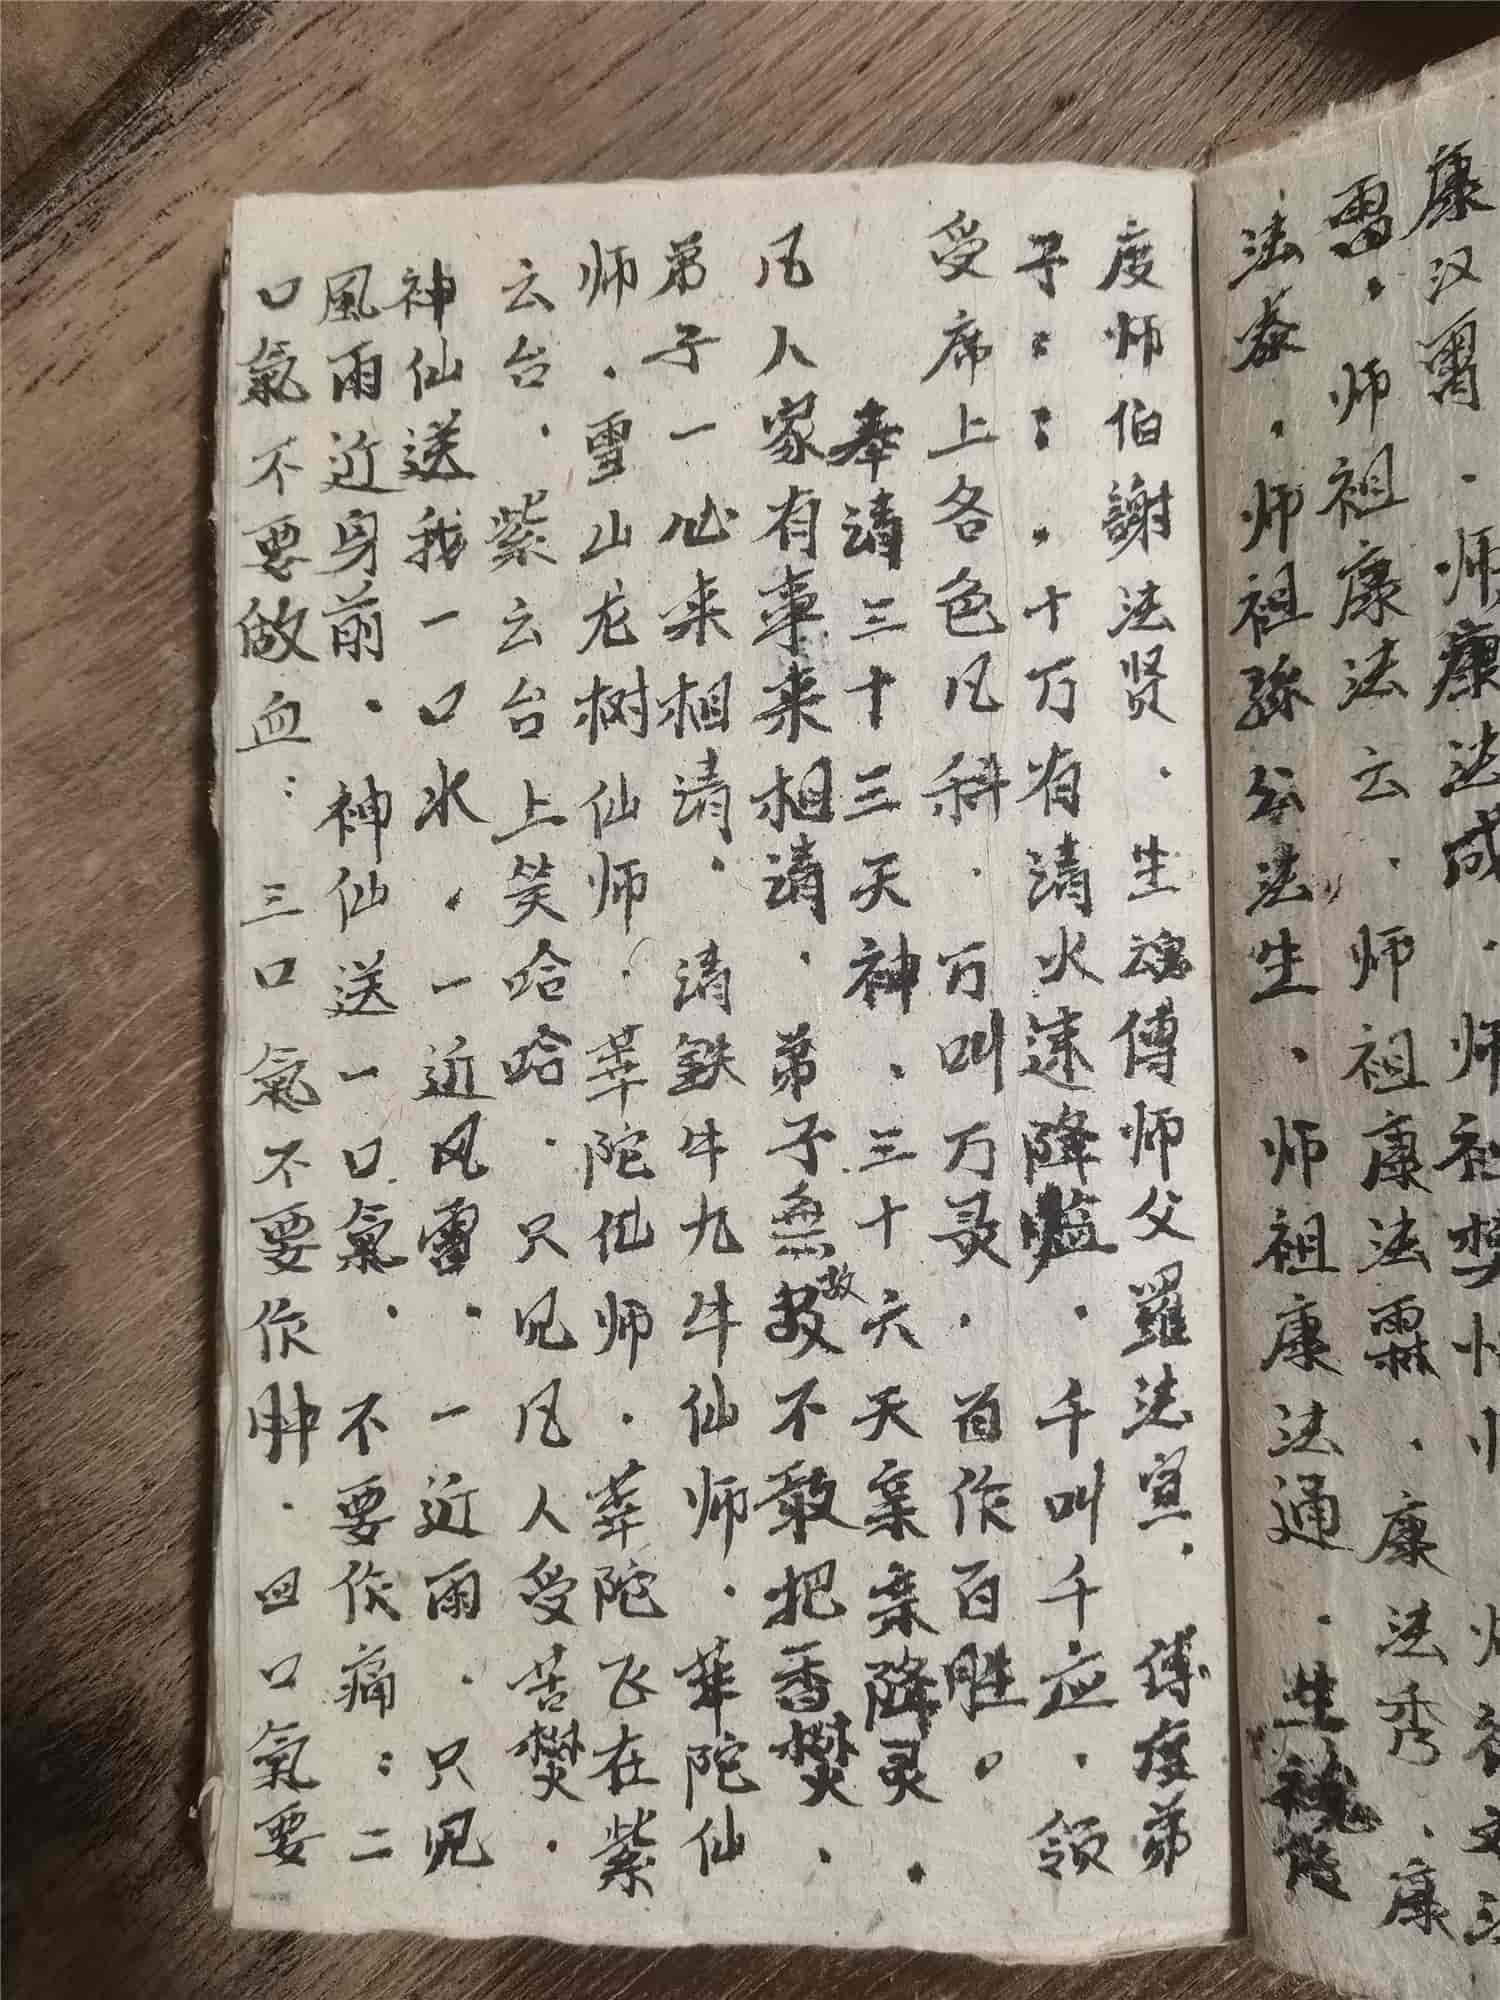 康汉霄．师康法成．师祖樊
雷．师祖康法云．师祖康法霖．康法秀．康
法泰．师祖孙公法生．师祖康法通．生魂傳
度师伯謝法贤．生魂傳师父羅法宣．傳度弟
子：：．十万有請火速降临．千叫千应．領
受席上各色凡科．万叫万灵．百作百胜。
奉請三十三天神、三十六天枭枭降灵．
凡人家有事来相請．弟子無故故不敢把香焚．
弟子一心来相請．請鉄牛九牛仙师．華陀仙
师．雪山龙树仙师．華陀仙师．華陀飞在紫
云台．紫云台上笑哈哈．只见凡人受苦焚．
神仙送我一口水．一近风雷．一近雨．只见
風雨近身前．神仙送一口氣．不要作痛：二
口氣不要做血：三口氣不要作肿．四口氣要